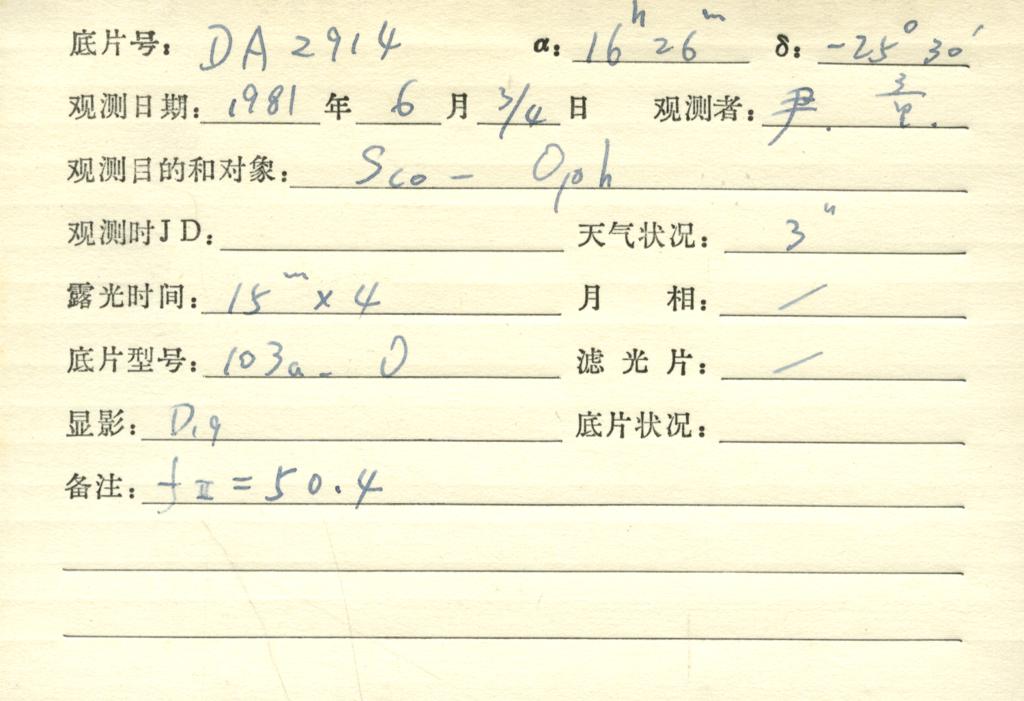 底片号: DA2914 α: 16ʰ26ᵐ δ: -25°30′
观测日期: 1981 年 6 月 3/4 日 观测者: 尹.
观测目的和对象: Sco - Oph
观测时JD: 天气状况: 3"
露光时间: 15ᵐ×4 月 相: /
底片型号: 103a-O 滤光片: /
显影: D19 底片状况:
备注: fⅡ=50.4